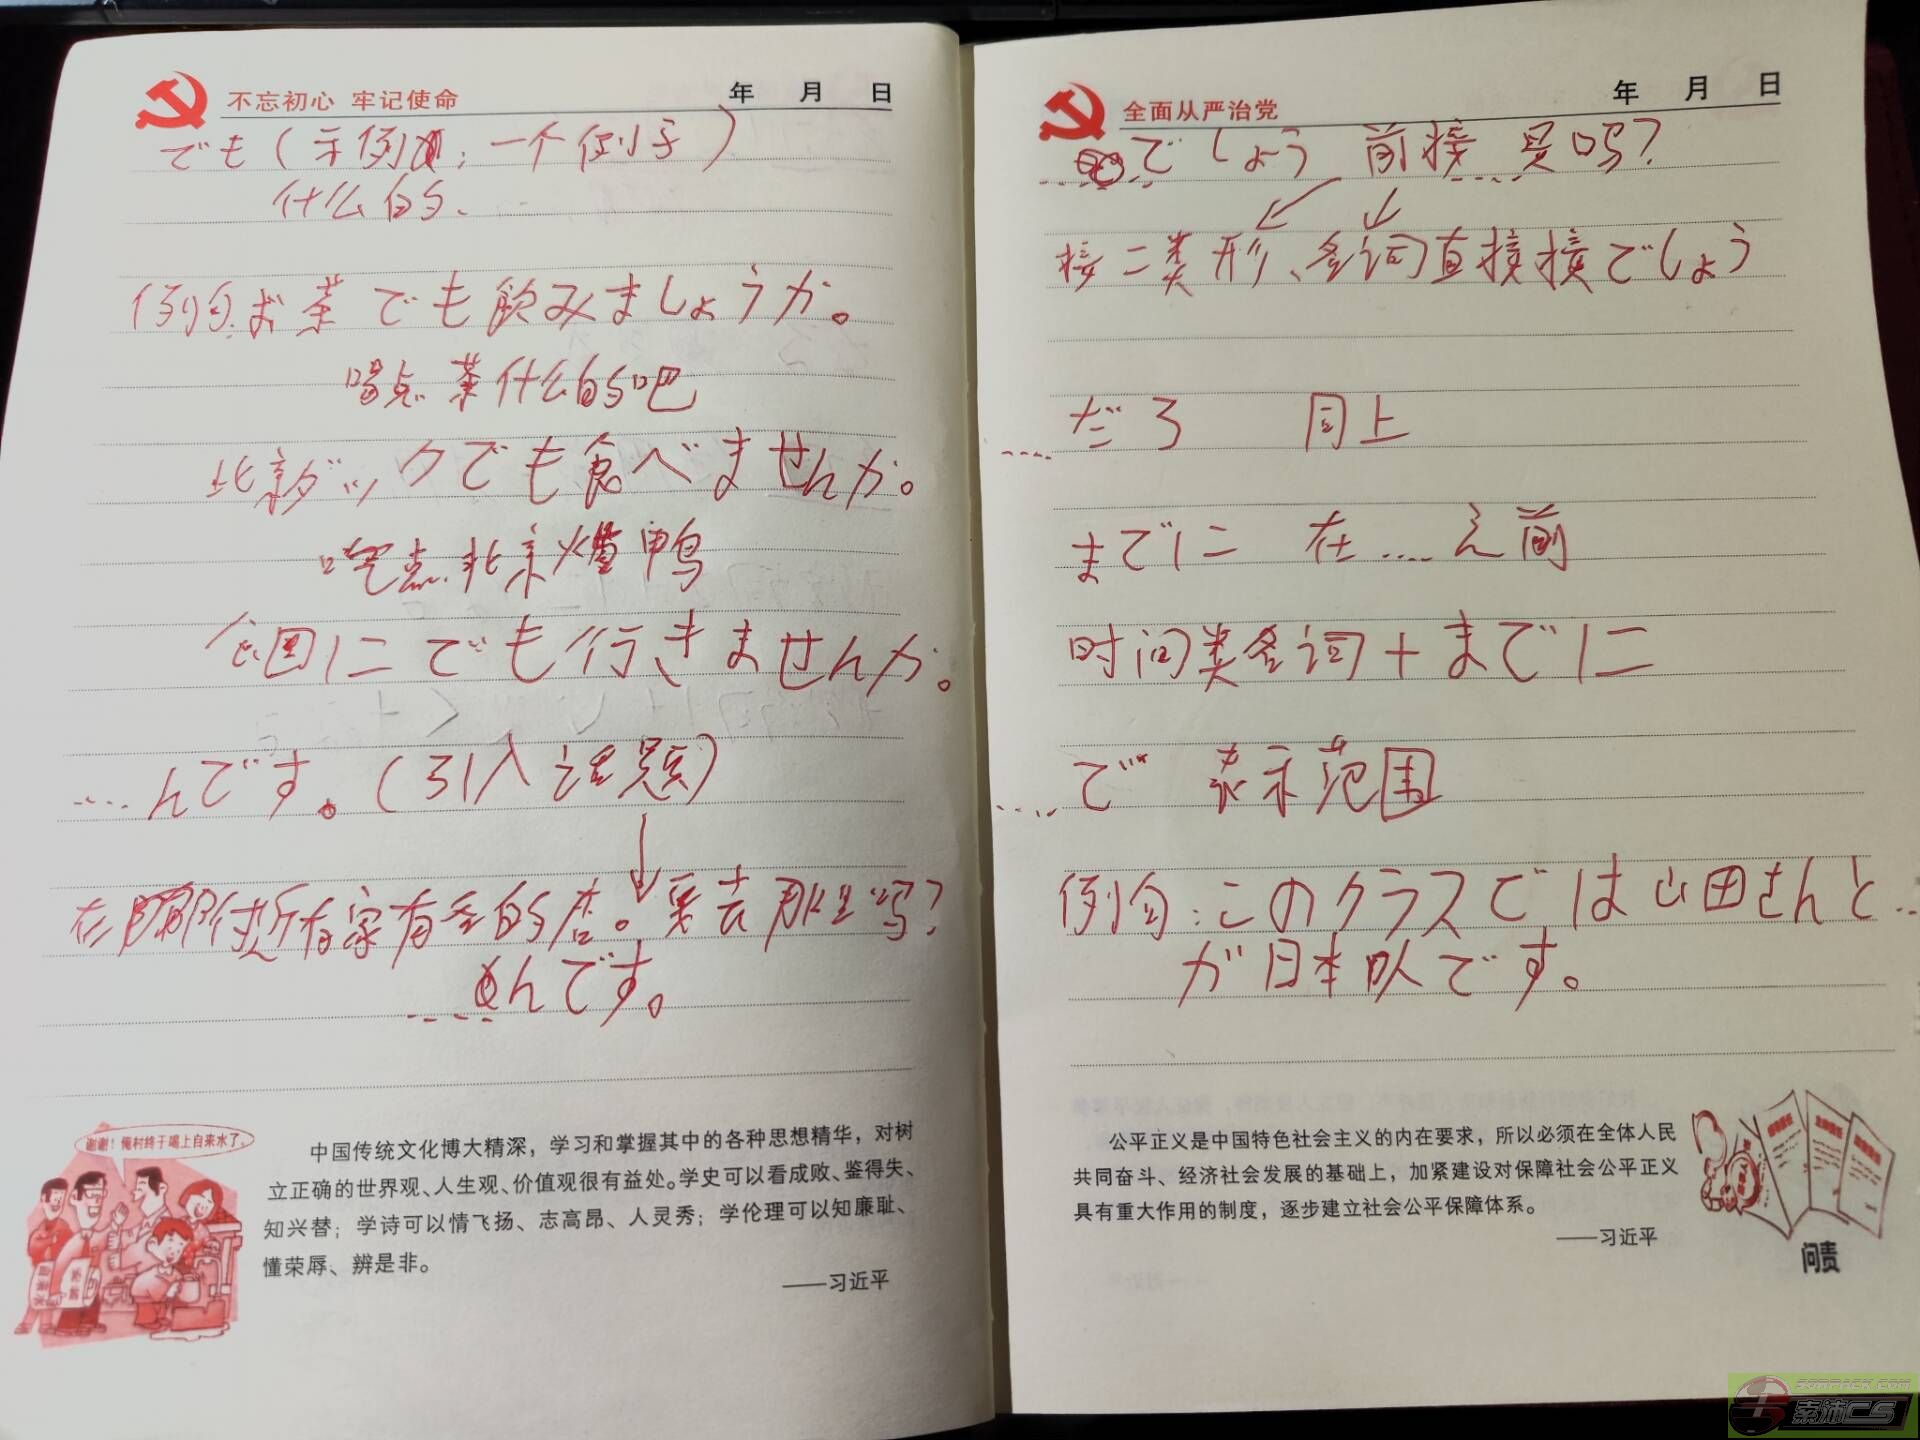 不忘初心 牢记使命
年 月 日
でも(示例 : 一个例子)
什么的、
例句.お茶でも飲みましょうか。
喝点茶什么的吧
北京ダックでも食べませんか。
吃点北京 鸭
公园にでも行きませんか。
....んです。(引入话题)
在 附近 有家有名的店。要去那里吗?
.... んです。
谢谢!俺村终于喝上自来水了。
中国传统文化博大精深,学习和掌握其中的各种思想精华,对树
立正确的世界观、人生观、价值观很有益处。学史可以看成败、鉴得失、
知兴替;学诗可以情飞扬、志高昂、人灵秀;学伦理可以知廉耻、
懂荣辱、辨是非。
——习近平
全面从严治党
年 月 日
....でしょう 前接 是....吗?
接二类形、名词直接接でしょう
....だろ 同上
までに 在....之前
时间类名词+までに
....で 表示范围
例句:このクラスでは山田さんと...
が日本 です。
公平正义是中国特色社会主义的内在要求,所以必须在全体人民
共同奋斗、经济社会发展的基础上,加紧建设对保障社会公平正义
具有重大作用的制度,逐步建立社会公平保障体系。
——习近平
问责
SORPACK.COM
索沛CS